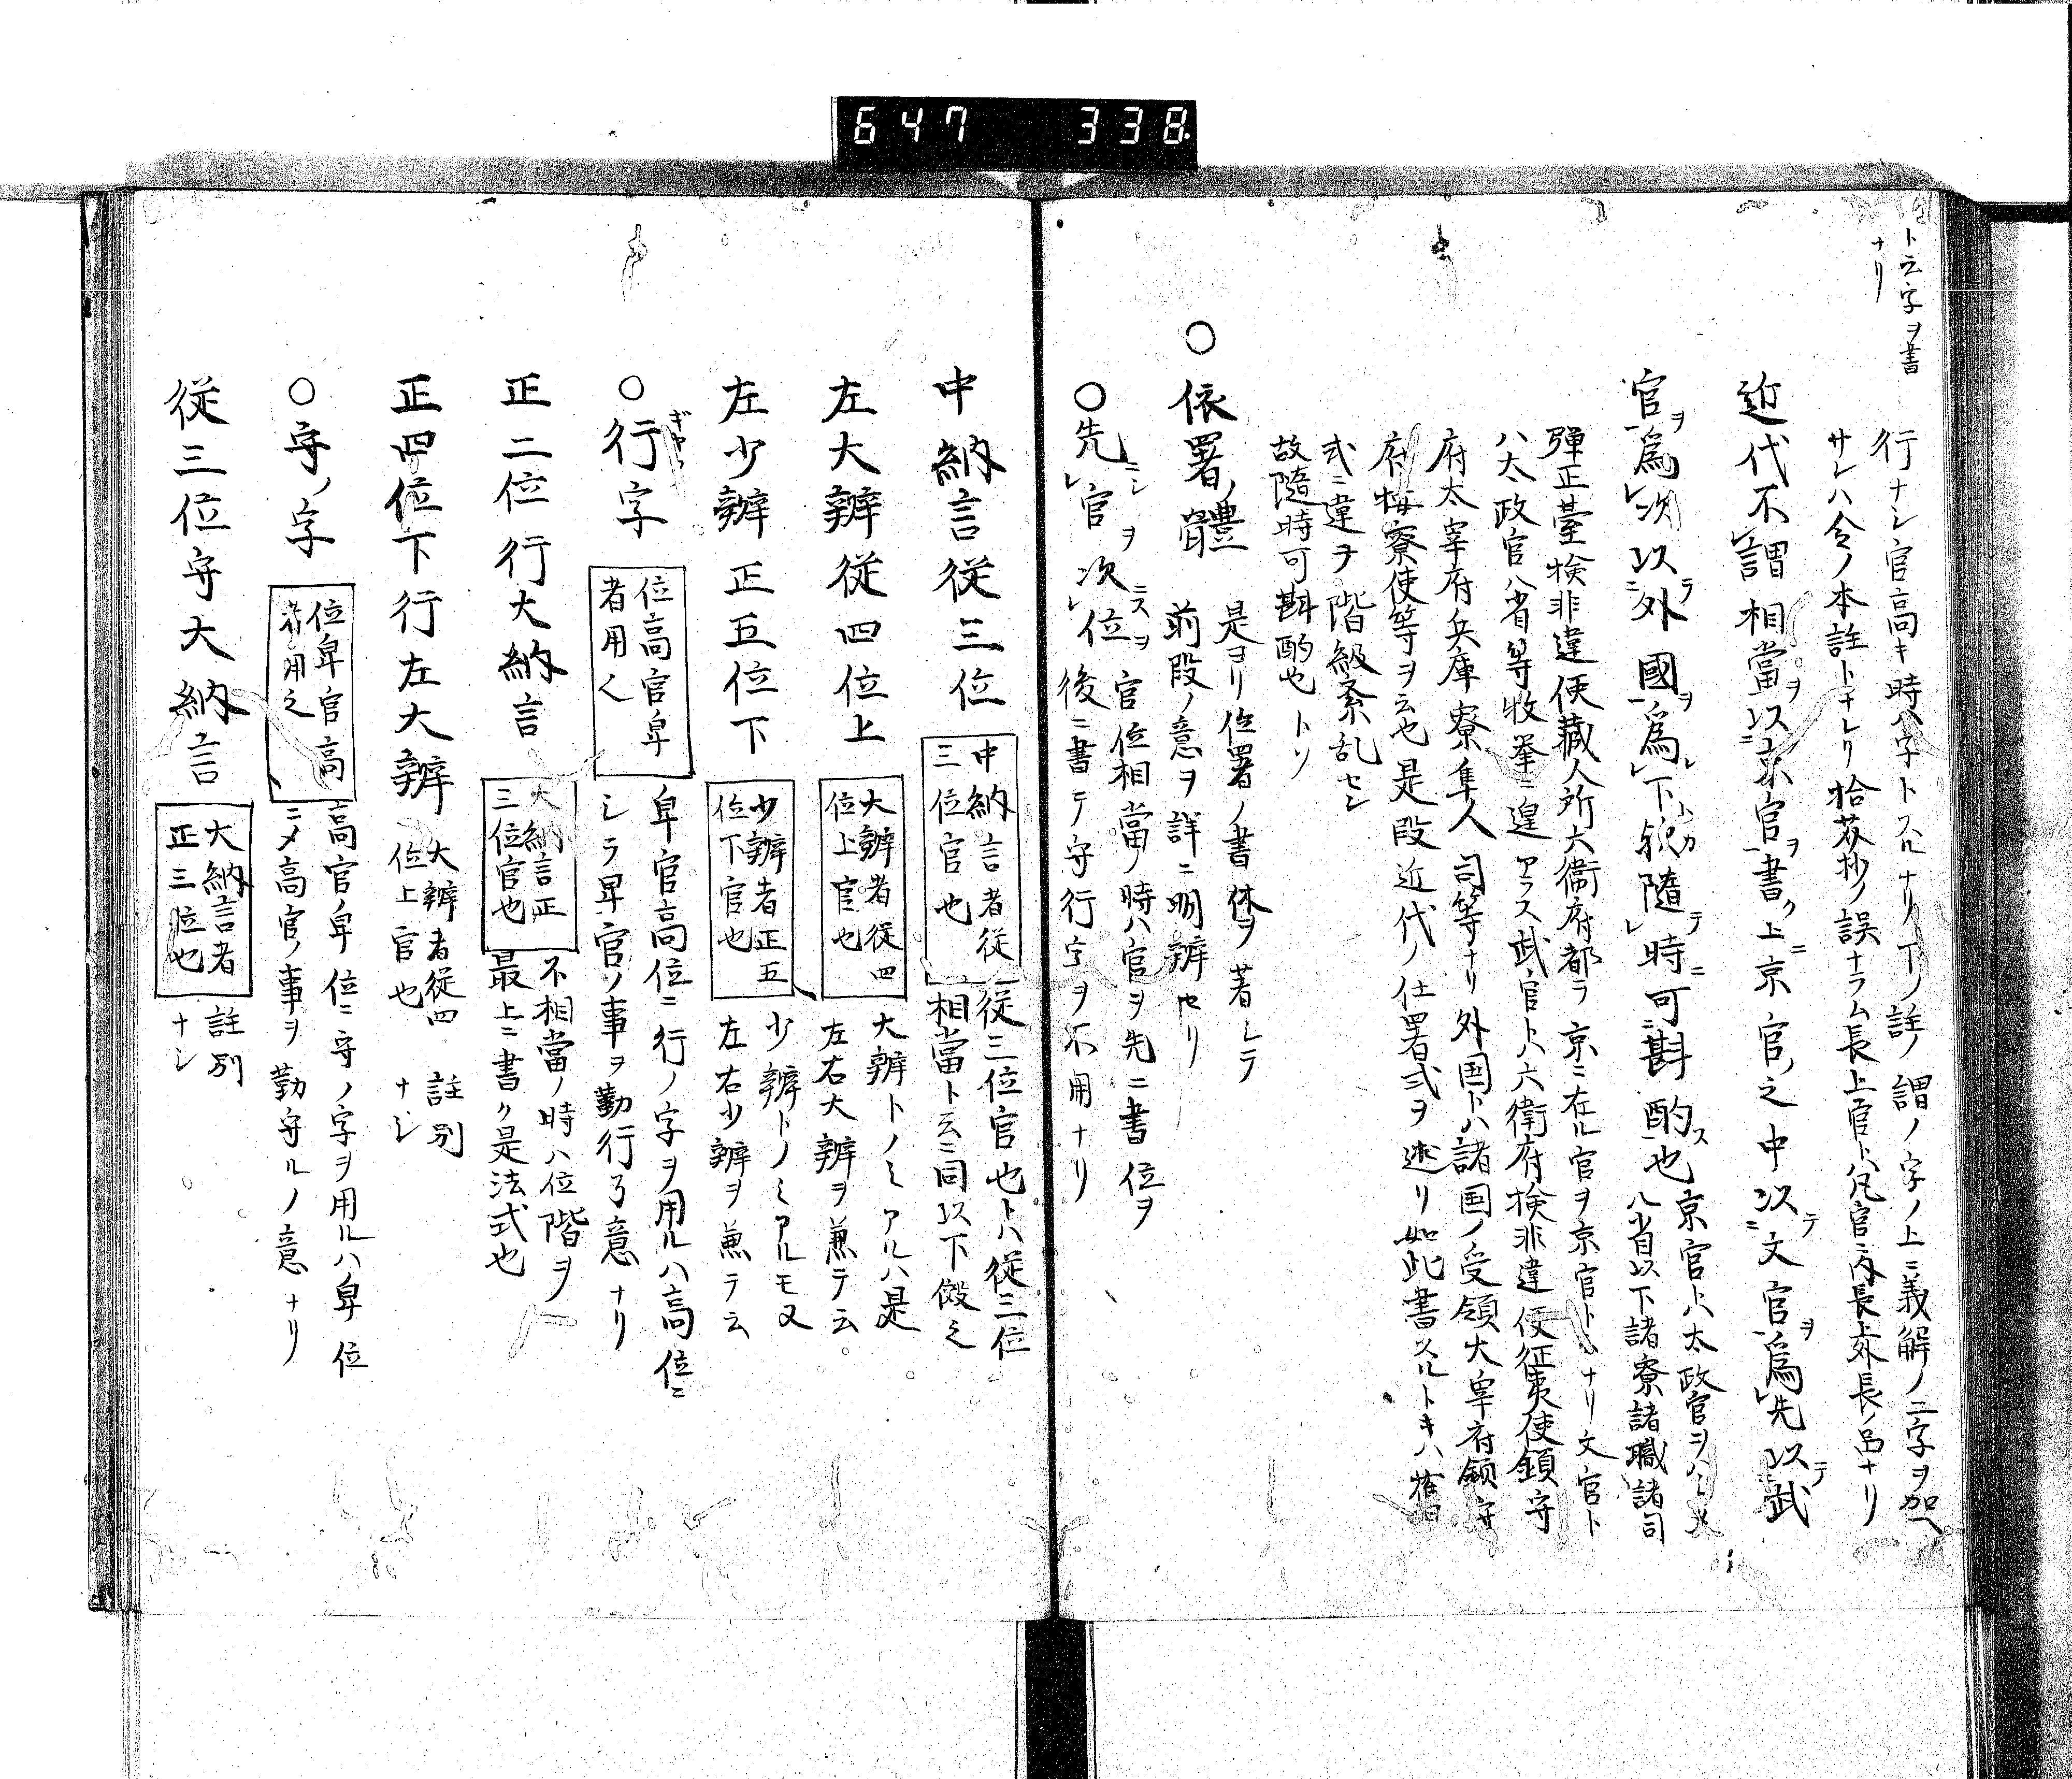 647 338
ト云字ヲ書
ナリ
行ナシ官高キ時八字トスルナリノ下ノ註ノ謂ノ字ノ上ニ義解ノ二字ヲ加ヘ
サレハ令ノ本註トナレリ拾芥抄ノ誤ナラム長上官トハ凡官ニ内長上外長ノ品ナリ
近代不謂相當ヲ以京官ヲ書ク上ニ京官之中以テ文官ヲ爲先以テ武
官ヲ爲次以テ外國ヲ爲下隨テ時ニ可斟酌ス也
京官トハ太政官
八省以下諸寮諸職諸司
彈正臺檢非違使藏人所六衞府都テ京ニ在ル官ヲ京官トナリ文官ト
ハ太政官八省等收擧ニ遑アラス武官トハ六衛府檢非違使征夷使鎮守
府太宰府兵庫寮隼人司等ナリ外国トハ諸国ノ受領大宰府鎮守
府按察使等ヲ云也是段近代ノ仕署式ヲ述リ如此書スルトキハ舊
式ニ違ヲ階級紊乱セン
故隨時可斟酌也トソ
○依署ノ體
是ヨリ位署ノ書体ヲ著シテ
前段ノ意ヲ詳ニ明辨セリ
○先ニシ官ヲ次ニス位ヲ
官位相當ノ時ハ官ヲ先ニ書位ヲ
後ニ書テ守行字ヲ不用ナリ
中納言従三位
中納言者従
三位官也
従三位官也トハ従三位
相當ト云ニ同以下倣之
左大辨従四位上
大辨者従四
位上官也
大辨トノミアルハ是
左右大辨ヲ兼テ云
左少辨正五位下
少辨者正五
位下官也
少辨トノミアルモ又
左右少辨ヲ兼テ云
○行字
位高官卑
者用之
卑官高位ニ行ノ字ヲ用ルハ高位ニ
シテ卑官ノ事ヲ勤行ノ意ナリ
正二位行大納言
大納言正
三位官也
不相當ノ時ハ位階ヲ
最上ニ書ク是法式也
正四位下行左大辨
大辨者従四
位上官也
註別
ナシ
○守ノ字
位卑官高
者用之
高官ノ卑位ニ守ノ字ヲ用ルハ卑位
ニメ高官ノ事ヲ勤守ルノ意ナリ
従三位守大納言
大納言者
正三位也
註別
ナシ